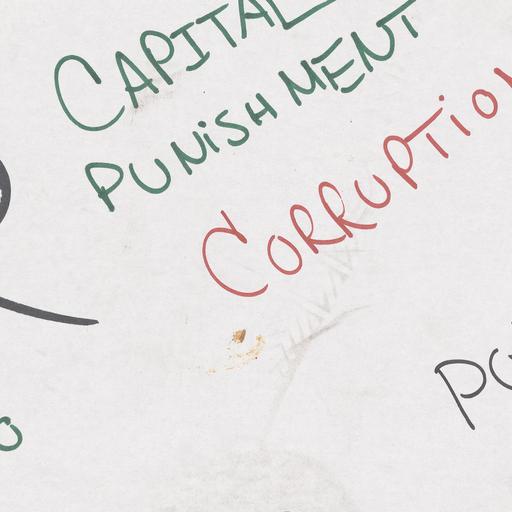 CAPITAL
PUNiSHMENT
CORRUPTiON